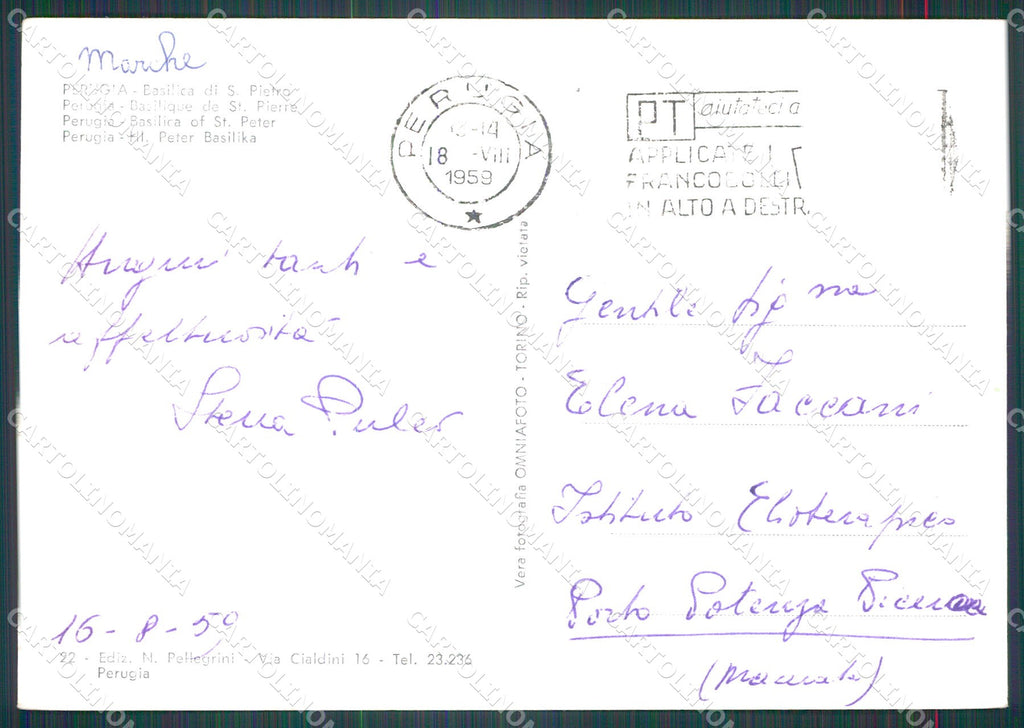 Marche
PERUGIA - Basilica di S. Pietro
Perugia - Basilique de St. Pierre
Perugia - Basilica of St. Peter
Perugia - Hl. Peter Basilika
PERUGIA
-14
18 -VIII
1959
PT aiutateci a
APPLICATE I
FRANCOBOLLI
IN ALTO A DESTR
Auguri tanti e
affettuosità
Stena
16-8-59
22 - Ediz. N. Pellegrini - Via Cialdini 16 - Tel. 23.236
Perugia
Vera fotografia OMNIAFOTO - TORINO - Rip. vietata
Gentile Sig na
Elena Faccani
Istituto Elioterapico
Porto Potenza Picena
(Macerata)
CARTOLINOMANIA